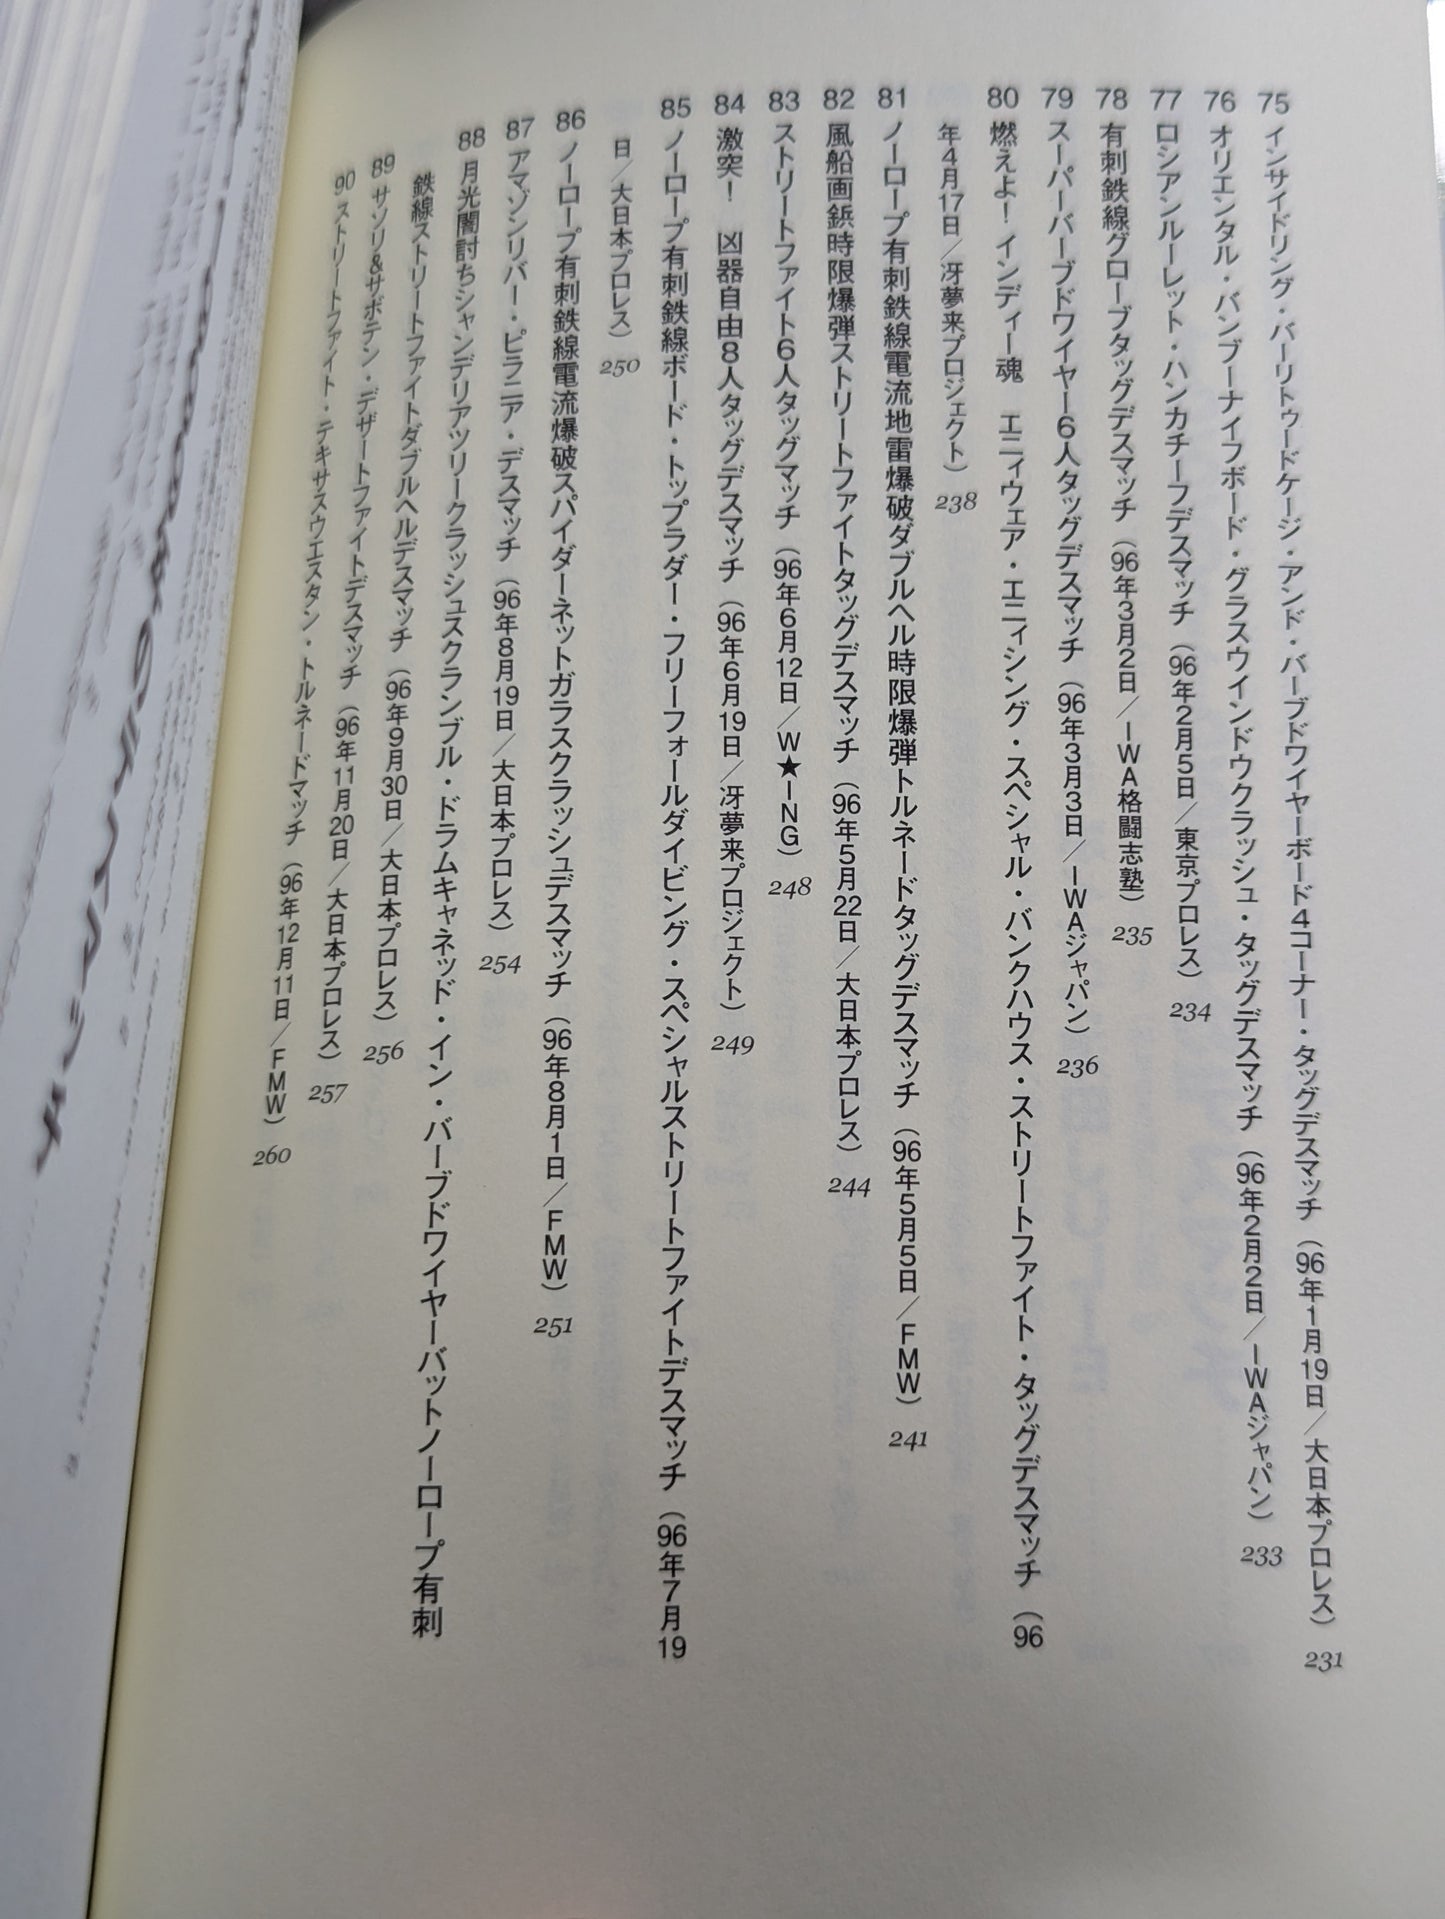 75 インサイドリング・バーリトゥードケージ・アンド・バーブドワイヤーボード4コーナー・タッグデスマッチ（96年1月19日／大日本プロレス） 231
76 オリエンタル・バンブーナイフボード・グラスウインドウクラッシュ・タッグデスマッチ（96年2月2日／IWAジャパン） 233
77 ロシアンルーレット・ハンカチーフデスマッチ（96年2月5日／東京プロレス） 234
78 有刺鉄線グローブタッグデスマッチ（96年3月2日／IWA格闘志塾） 235
79 スーパーバーブドワイヤー6人タッグデスマッチ（96年3月3日／IWAジャパン） 236
80 燃えよ！インディー魂　エニィウェア・エニィシング・スペシャル・バンクハウス・ストリートファイト・タッグデスマッチ（96
年4月17日／冴夢来プロジェクト） 238
81 ノーロープ有刺鉄線電流地雷爆破ダブルヘル時限爆弾トルネードタッグデスマッチ（96年5月5日／FMW） 241
82 風船画鋲時限爆弾ストリートファイトタッグデスマッチ（96年5月22日／大日本プロレス） 244
83 ストリートファイト6人タッグマッチ（96年6月12日／W★ING） 248
84 激突！　凶器自由8人タッグデスマッチ（96年6月19日／冴夢来プロジェクト） 249
85 ノーロープ有刺鉄線ボード・トップラダー・フリーフォールダイビング・スペシャルストリートファイトデスマッチ（96年7月19
日／大日本プロレス） 250
86 ノーロープ有刺鉄線電流爆破スパイダーネットガラスクラッシュデスマッチ（96年8月1日／FMW） 251
87 アマゾンリバー・ピラニア・デスマッチ（96年8月19日／大日本プロレス） 254
88 月光闇討ちシャンデリアツリークラッシュスクランブル・ドラムキャネッド・イン・バーブドワイヤーバットノーロープ有刺
鉄線ストリートファイトダブルヘルデスマッチ（96年9月30日／大日本プロレス） 256
89 サソリ&サボテン・デザートファイトデスマッチ（96年11月20日／大日本プロレス） 257
90 ストリートファイト・テキサスウエスタン・トルネードマッチ（96年12月11日／FMW） 260